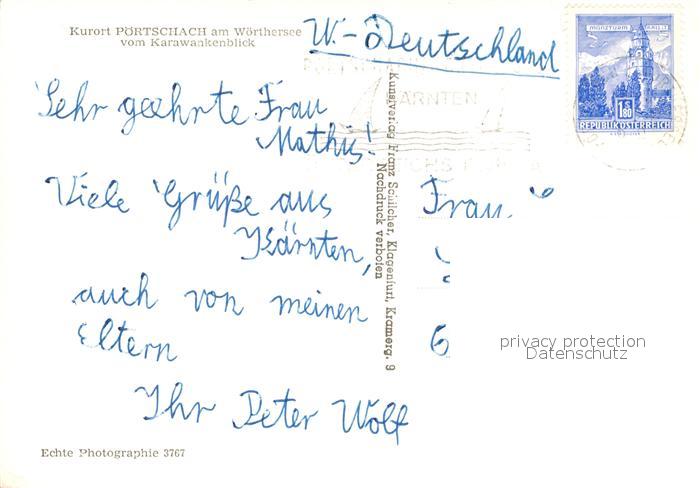 Kurort PÖRTSCHACH am Wörthersee
vom Karawankenblick
W.-Deutschland
MÜNZTURM
HALL i.T.
1S80
REPUBLIK ÖSTERREICH
KÄRNTEN
Sehr geehrte Frau
Mathis!
Viele Grüße aus
Kärnten,
auch von meinen
Eltern
Ihr Peter Wolf
Kunstverlag Franz Schilcher, Klagenfurt, Kramerg. 9
Nachdruck verboten
Frau
6
privacy protection
Datenschutz
Echte Photographie 3767